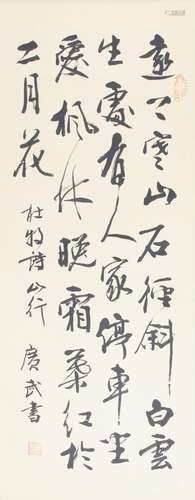 遠上寒山石徑斜白雲
生處有人家停車坐
愛楓林晚霜葉紅於
二月花 杜牧詩山行 廣武書